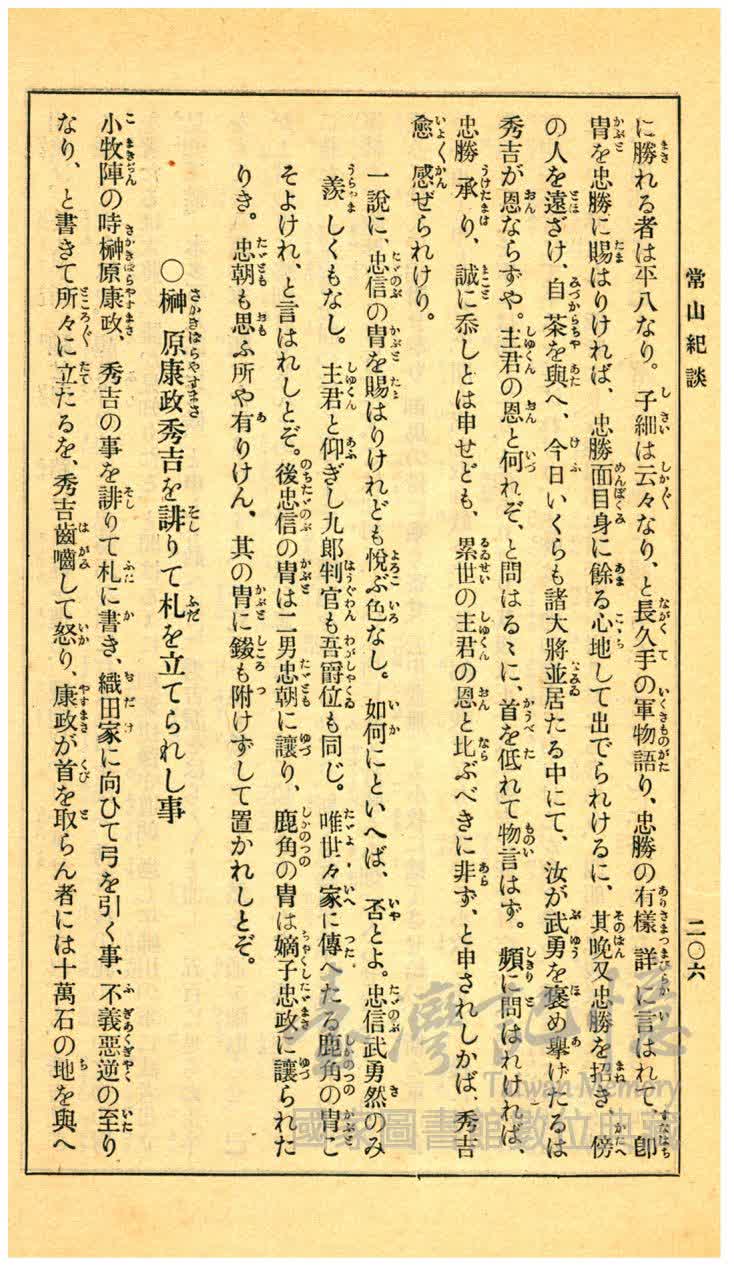 常山紀談
二〇六
に勝れる者は平八なり。子細は云々なり、と長久手の軍物語り、忠勝の有樣詳に言はれて、卽
冑を忠勝に賜はりければ、忠勝面目身に餘る心地して出でられけるに、其晩又忠勝を招き、傍
の人を遠ざけ、自茶を與へ、今日いくらも諸大將並居たる中にて、汝が武勇を褒め擧げたるは
秀吉が恩ならずや。主君の恩と何れぞ、と問はるゝに、首を低れて物言はず。頻に問はれければ、
忠勝承り、誠に忝しとは申せども、累世の主君の恩と比ぶべきに非ず、と申されしかば、秀吉
愈感ぜられけり。
一說に、忠信の冑を賜はりけれども悅ぶ色なし。如何にといへば、否とよ。忠信武勇然のみ
羨しくもなし。主君と仰ぎし九郎判官も吾爵位も同じ。唯世々家に傳へたる鹿角の冑こ
そよけれ、と言はれしとぞ。後忠信の冑は二男忠朝に讓り、鹿角の冑は嫡子忠政に讓られた
りき。忠朝も思ふ所や有りけん、其の冑に錣も附けずして置かれしとぞ。
〇榊原康政秀吉を誹りて札を立てられし事
小牧陣の時榊原康政、秀吉の事を誹りて札に書き、織田家に向ひて弓を引く事、不義惡逆の至り
なり、と書きて所々に立たるを、秀吉齒嚙して怒り、康政が首を取らん者には十萬石の地を與へ
臺灣記憶
Taiwan Memory
國家圖書館數位典藏